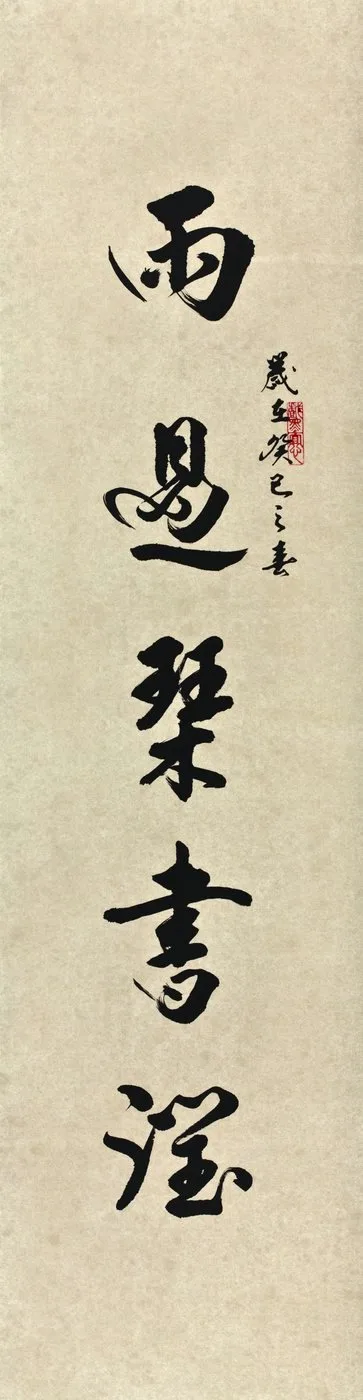 歲在癸巳之春
雨過琹書潤